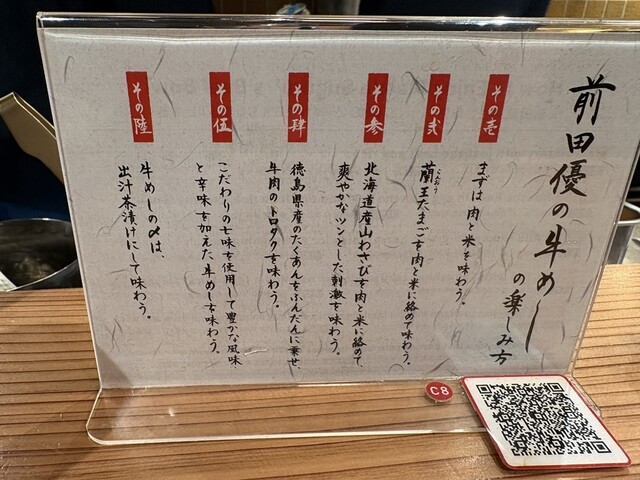 前田優の牛めし
の楽しみ方
その壱
まずは肉と米を味わう。
その弐
蘭王たまごを肉と米に絡めて味わう。
らんおう
その参
北海道産山わさびを肉と米に絡めて、
爽やかなツンとした刺激を味わう。
その肆
徳島県産のたくあんをふんだんに乗せ、
牛肉のトロタクを味わう。
その伍
こだわりの七味を使用して豊かな風味
と辛味を加えた、牛めしを味わう。
その陸
牛めしの〆は、
出汁茶漬けにして味わう。
C8